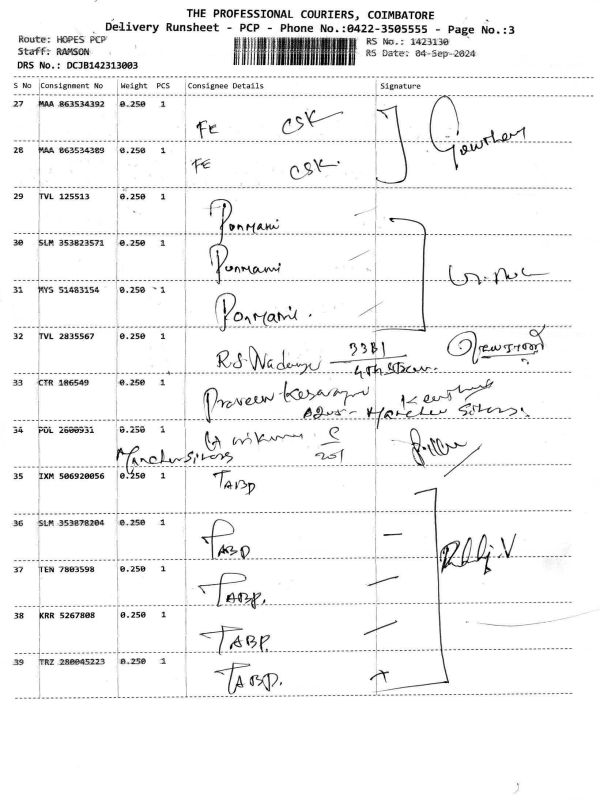 THE PROFESSIONAL COURIERS, COIMBATORE
Delivery Runsheet - PCP - Phone No.:0422-3505555 - Page No.:3
Route: HOPES PCP RS No.: 1423130
Staff: RAMSON RS Date: 04-Sep-2024
DRS No.: DCJB142313003
S No Consignment No Weight PCS Consignee Details Signature
27 MAA 863534392 0.250 1 FE CSK
28 MAA 863534389 0.250 1 FE CSK
29 TVL 125513 0.250 1 Ponmani
30 SLM 353823571 0.250 1 Ponmani
31 MYS 51483154 0.250 1 Ponmani
32 TVL 2835567 0.250 1 R.S. 33B1
33 CTR 186549 0.250 1 Praveen
34 PDL 2600931 0.250 1 C 201
35 IXM 506920056 0.250 1 TABP
36 SLM 353878204 0.250 1 TABP
37 TEN 7803598 0.250 1 TABP.
38 KRR 5267808 0.250 1 TABP
39 TRZ 280045223 0.250 1 TABP.